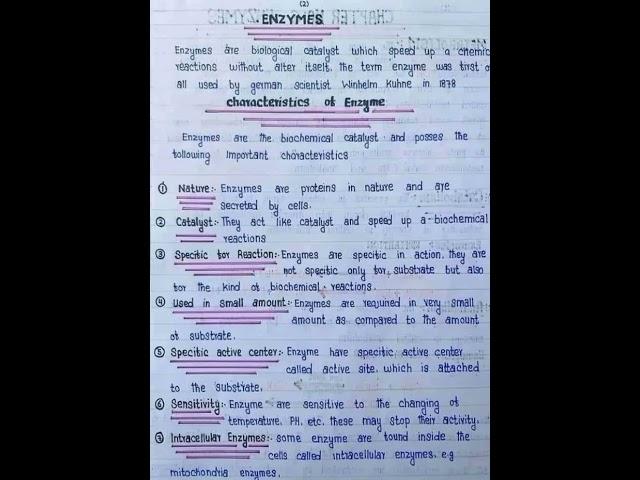 (2)
ENZYMES.
Enzymes are biological catalyst which speed up a chemic
reactions without alter itself. the term enzyme was first o
all used by german scientist Winhelm Kuhne in 1878
characteristics of Enzyme
Enzymes are the biochemical catalyst and posses the
following important characteristics
① Nature:- Enzymes are proteins in nature and are
secreted by cells.
② Catalyst:- They act like catalyst and speed up a biochemical
reactions
③ Specific for Reaction:- Enzymes are specific in action. they are
not specific only for substrate but also
for the kind of biochemical reactions.
④ Used in small amount:- Enzymes are requined in very small
amount as compared to the amount
of substrate.
⑤ Specific active center:- Enzyme have specific active center
called active site. which is attached
to the substrate.
⑥ Sensitivity:- Enzyme are sensitive to the changing of
temperature, PH, etc. these may stop their activity.
⑦ Intracellular Enzymes:- some enzyme are found inside the
cells called intracellular enzymes. e.g
mitochondria enzymes.